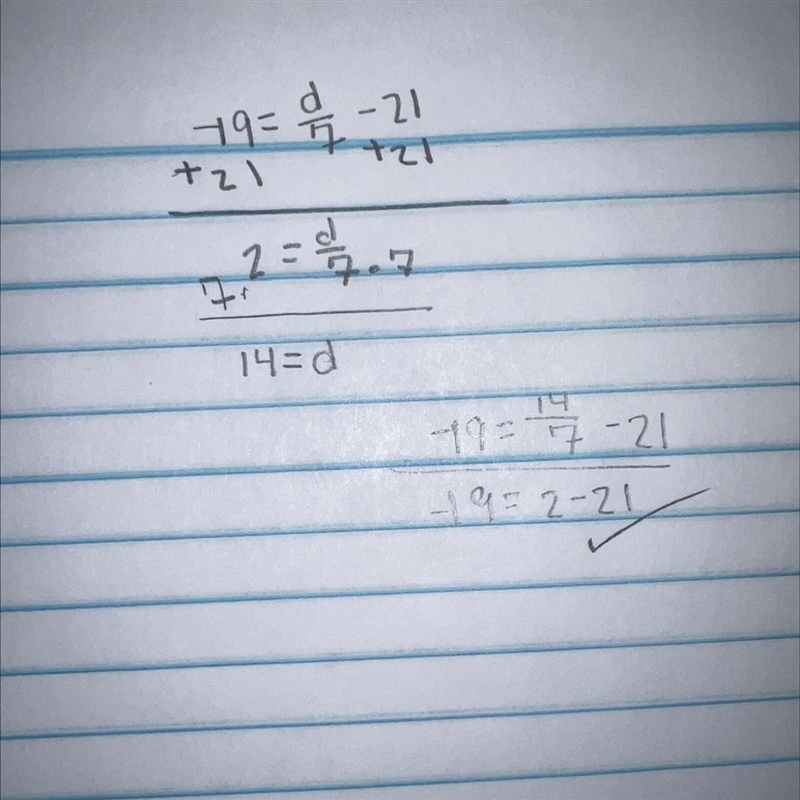 -19 = d/7 - 21
+21 +21
2 = d/7 · 7
7·
14 = d
-19 = 14/7 - 21
-19 = 2 - 21 ✓